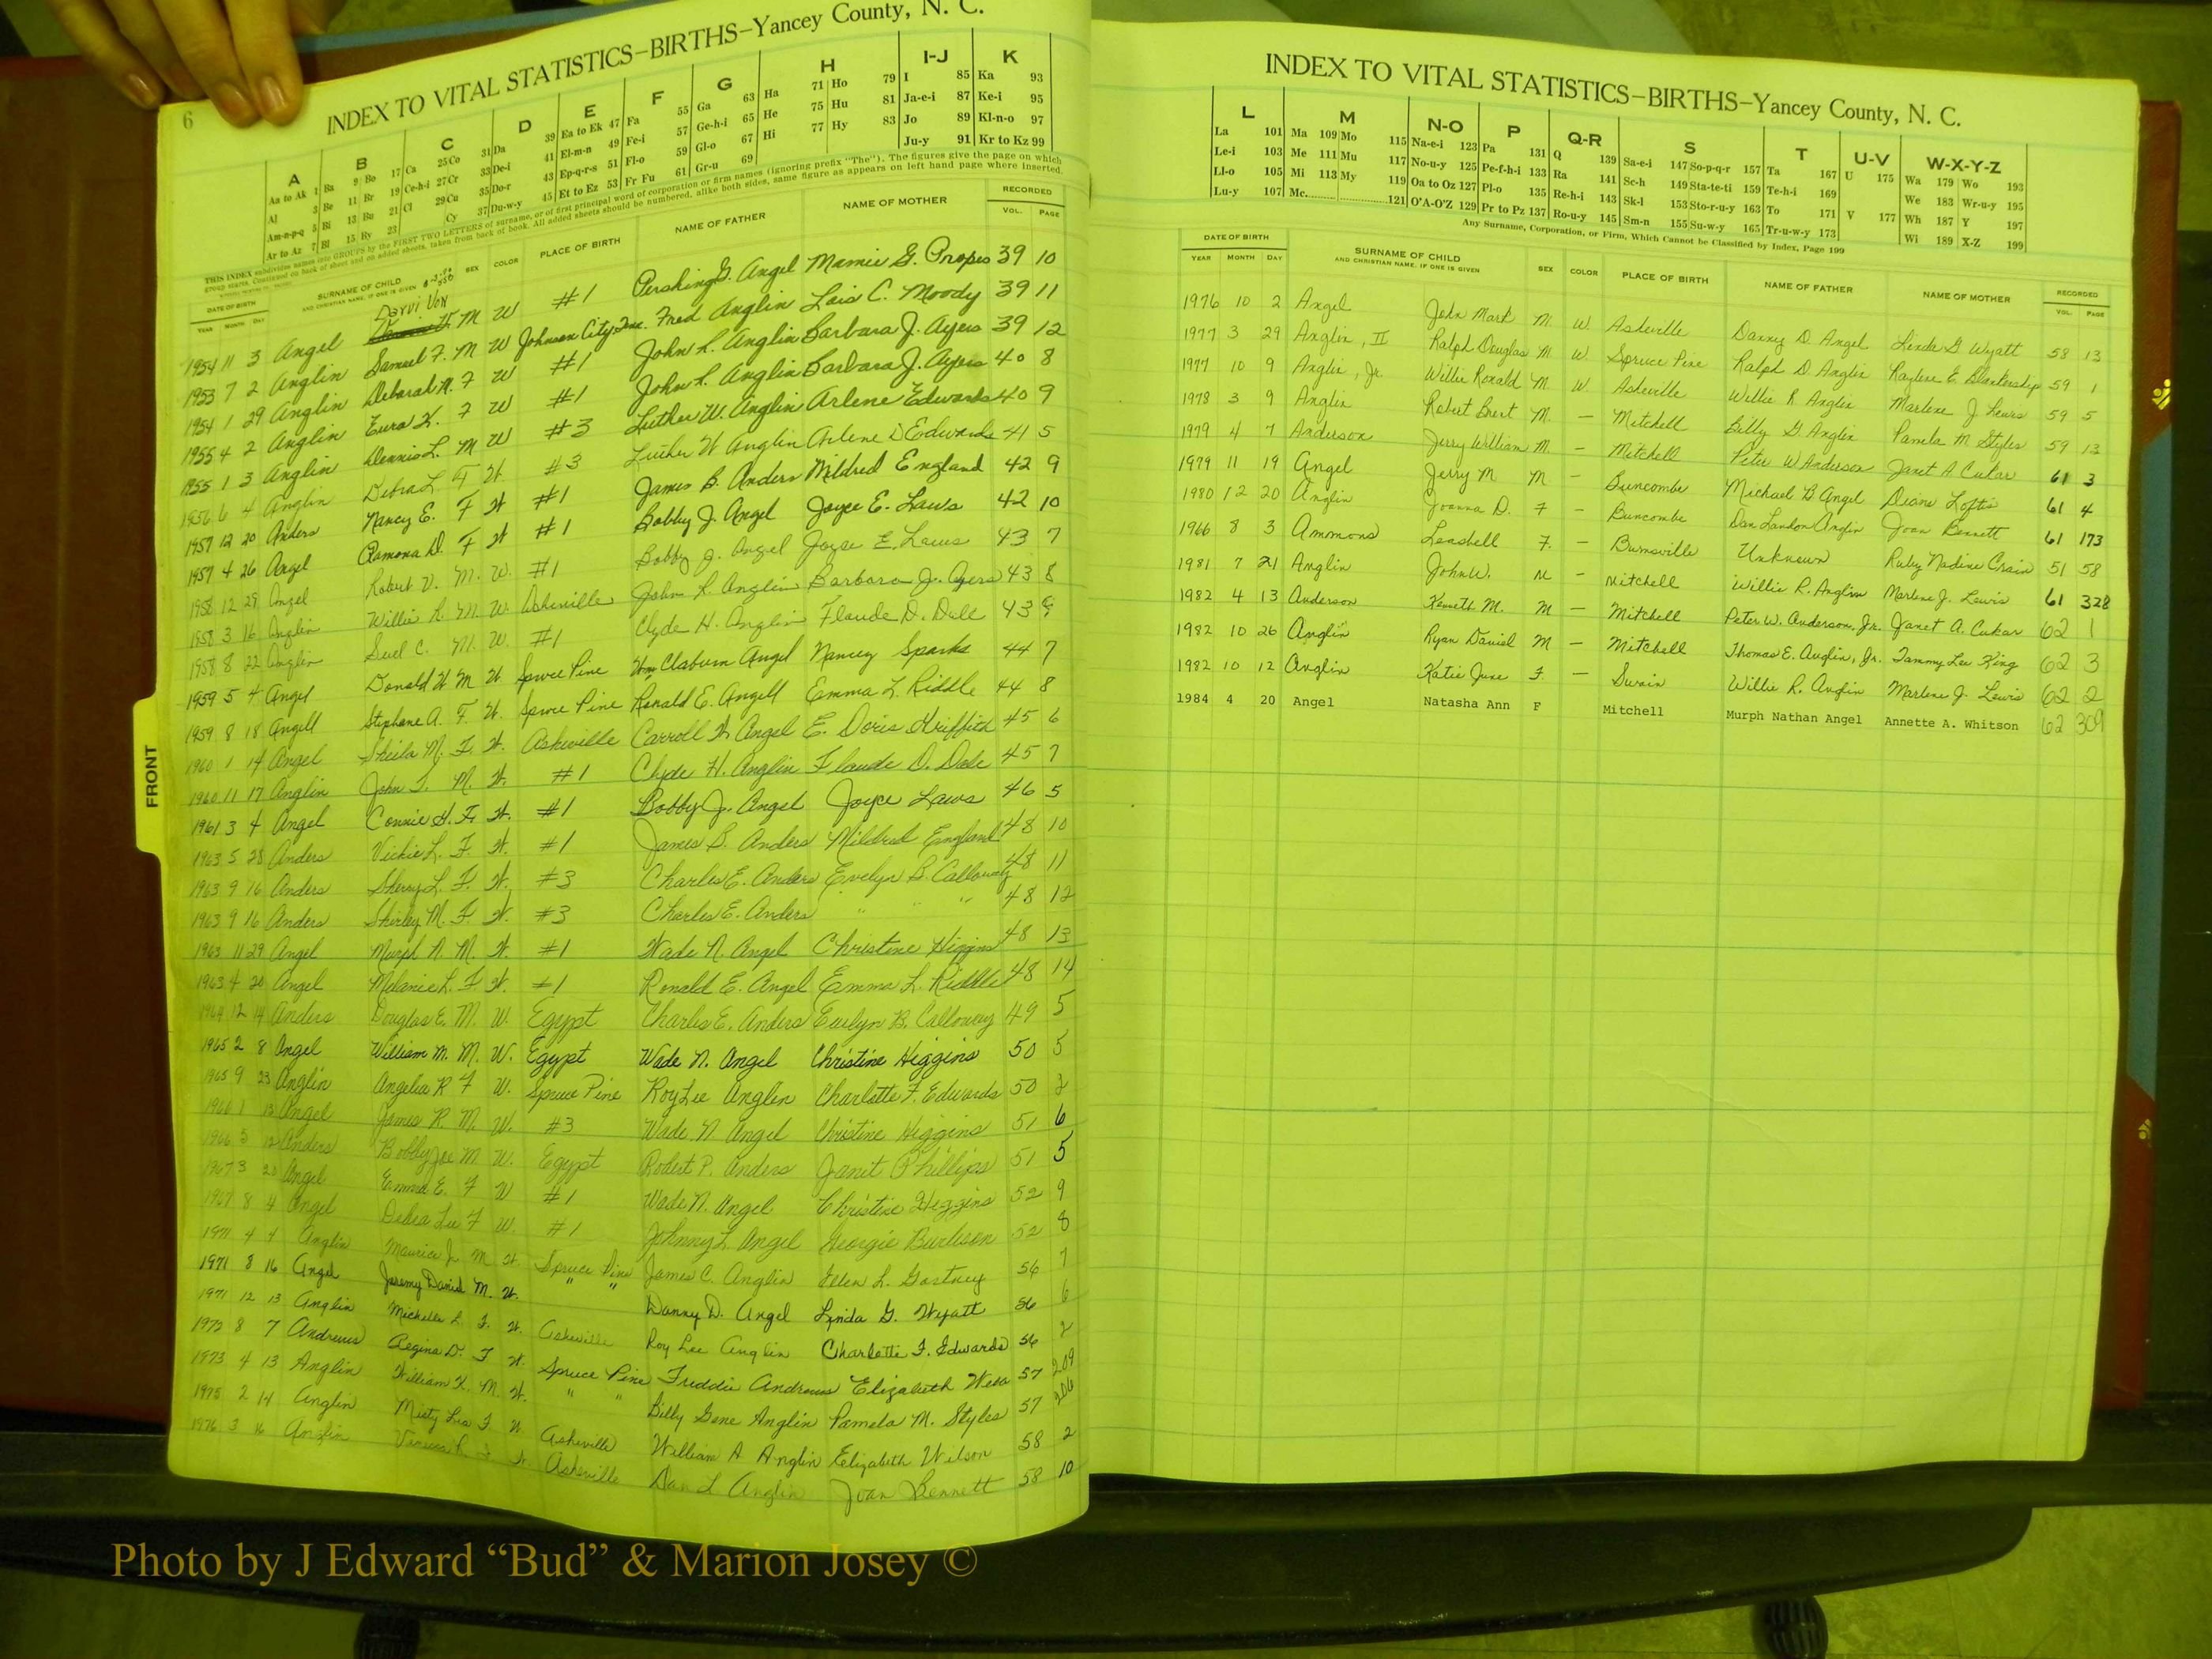 6
INDEX TO VITAL STATISTICS–BIRTHS–Yancey County, N. C.
A B C D E F G H I-J K
Aa to Ak 1 Ba 9 Bo 17 Ca 25 Co 31 Da 39 Ea to Ek 47 Fa 55 Ga 63 Ha 71 Ho 79 I 85 Ka 93
Al 3 Be 11 Br 19 Ce-h-i 27 Cr 33 De-i 41 El-m-n 49 Fe-i 57 Ge-h-i 65 He 75 Hu 81 Ja-e-i 87 Ke-i 95
Am-n-p-q 5 Bi 13 Bu 21 Cl 29 Cu 35 Do-r 43 Ep-q-r-s 51 Fl-o 59 Gl-o 67 Hi 77 Hy 83 Jo 89 Kl-n-o 97
Ar to Az 7 Bl 15 By 23 Cy 37 Du-w-y 45 Et to Ez 53 Fr Fu 61 Gr-u 69 Ju-y 91 Kr to Kz 99
THIS INDEX subdivides names into GROUPS by the FIRST TWO LETTERS of surname, or of first principal word of corporation or firm names (ignoring prefix "The"). The figures give the page on which
group starts. Continued on back of sheet and on added sheets, taken from back of book. All added sheets should be numbered, alike both sides, same figure as appears on left hand page where inserted.
DATE OF BIRTH YEAR MONTH DAY SURNAME OF CHILD AND CHRISTIAN NAME, IF ONE IS GIVEN SEX COLOR PLACE OF BIRTH NAME OF FATHER NAME OF MOTHER RECORDED VOL. PAGE
Darvi Von
1954 11 3 Angel M W #1 Pershing G. Angel Mamie G. Propes 39 10
1953 7 2 Anglin Samuel F. M W Johnson City Fred Anglin Lois C. Moody 39 11
1954 1 29 Anglin Deborah F W #1 John R. Anglin Barbara J. Ayers 39 12
1955 4 2 Anglin Eura K. F W #1 John R. Anglin Barbara J. Ayers 40 8
1955 1 3 Anglin Dennis L. M W #3 Luther W. Anglin Arlene Edwards 40 9
1956 6 4 Anglin Debra L. F W. #3 Luther W Anglin Arlene D Edwards 41 5
1957 12 20 Anders Nancy E. F W #1 James B. Anders Mildred England 42 9
1957 4 26 Angel Ramona D. F W #1 Bobby J. Angel Joyce E. Laws 42 10
1958 12 29 Angel Robert V. M. W. #1 Bobby J. Angel Joyce E. Laws 43 7
1958 3 16 Anglin Willie R. M. W. Asheville John R. Anglin Barbara J. Ayers 43 8
1958 8 22 Anglin Suel C. M. W. #1 Clyde H. Anglin Flaude D. Dale 43 9
1959 5 4 Angel Donald W M W Spruce Pine Wm Claburn Angel Nancy Sparks 44 7
1959 8 18 Angell Stephane A. F. W. Spruce Pine Ronald E. Angell Emma L. Riddle 44 8
1960 1 14 Angel Sheila M. F. W. Asheville Carroll W. Angel E. Doris Griffith 45 6
1960 11 17 Anglin John T. M. W. #1 Clyde H. Anglin Flaude D. Dale 45 7
1961 3 4 Angel Connie G. F. W. #1 Bobby J. Angel Joyce Laws 46 5
1963 5 28 Anders Vickie L. F. W. #1 James B. Anders Mildred England 48 10
1963 9 16 Anders Sherry L. F. W. #3 Charles E. Anders Evelyn B. Calloway 48 11
1963 9 16 Anders Shirley M. F. W. #3 Charles E. Anders " " " 48 12
1963 11 29 Angel Murph N. M. W. #1 Wade N. Angel Christine Higgins 48 13
1963 4 20 Angel Melanie L. F W. #1 Ronald E. Angel Emma L. Riddle 48 14
1964 12 14 Anders Douglas E. M. W. Egypt Charles E. Anders Evelyn B. Calloway 49 5
1965 2 8 Angel William M. M. W. Egypt Wade N. Angel Christine Higgins 50 5
1965 9 23 Anglin Angelia R F W. Spruce Pine Roy Lee Anglin Charlotte F. Edwards 50 2
1966 1 13 Angel James R. M. W. #3 Wade N Angel Christine Higgins 51 6
1966 5 12 Anders Bobby Joe M. W. Egypt Robert P. Anders Janet Phillips 51 5
1967 3 20 Angel Emma E. F W #1 Wade N. Angel Christine Higgins 52 9
1967 8 4 Angel Debra Lee F W. #1 Johnny L. Angel Georgie Burleson 52 8
1971 4 4 Anglin Maurice Jr M W. Spruce Pine James C. Anglin Helen L. Gortney 56 7
1971 8 16 Angel Jeremy David M. W. " " Danny D. Angel Linda G. Wyatt 56 6
1971 12 13 Anglin Michelle L. F. W. Asheville Roy Lee Anglin Charlotte F. Edwards 56 2
1972 8 7 Andrews Regina D. F W. Spruce Pine Freddie Andrews Elizabeth 57 209
1973 4 13 Anglin William K. M. W. " " Billy Gene Anglin Pamela M. Styles 57 206
1975 2 14 Anglin Misty Lea F. W Asheville William A Anglin Elizabeth Wilson 58 2
1976 3 16 Anglin Asheville Dan L Anglin Joan Bennett 58 10
FRONT
INDEX TO VITAL STATISTICS–BIRTHS–Yancey County, N. C.
L M N-O P Q-R S T U-V W-X-Y-Z
La 101 Ma 109 Mo 115 Na-e-i 123 Pa 131 Q 139 Sa-e-i 147 So-p-q-r 157 Ta 167 U 175 Wa 179 Wo 193
Le-i 103 Me 111 Mu 117 No-u-y 125 Pe-f-h-i 133 Ra 141 Sc-h 149 Sta-te-ti 159 Te-h-i 169 We 183 Wr-u-y 195
Ll-o 105 Mi 113 My 119 Oa to Oz 127 Pl-o 135 Re-h-i 143 Sk-l 153 Sto-r-u-y 163 To 171 V 177 Wh 187 Y 197
Lu-y 107 Mc 121 O'A-O'Z 129 Pr to Pz 137 Ro-u-y 145 Sm-n 155 Su-w-y 165 Tr-u-w-y 173 Wi 189 X-Z 199
Any Surname, Corporation, or Firm, Which Cannot be Classified by Index, Page 199
DATE OF BIRTH YEAR MONTH DAY SURNAME OF CHILD AND CHRISTIAN NAME, IF ONE IS GIVEN SEX COLOR PLACE OF BIRTH NAME OF FATHER NAME OF MOTHER RECORDED VOL. PAGE
1976 10 2 Angel John Mark M W Asheville Danny D. Angel Linda G Wyatt 58 13
1977 3 29 Anglin, II Ralph Douglas M W. Spruce Pine Ralph D. Anglin Raylene E. Blankenship 59 1
1977 10 9 Anglin, Jr. Willie Ronald M W. Asheville Willie R Anglin Marlene J. Lewis 59 5
1978 3 9 Anglin Robert Brent M. – Mitchell Billy G Anglin Pamela M Styles 59 13
1979 4 7 Anderson Jerry William M. – Mitchell Peter W Anderson Janet A Cukar 61 3
1979 11 19 Angel Jerry M M – Buncombe Michael B Angel Diane Loftis 61 4
1980 12 20 Anglin Joanna D. F – Buncombe Dan Landon Anglin Joan Bennett 61 173
1966 8 3 Ammons Leashell F. – Burnsville Unknown Ruby Nadine Crain 51 58
1981 7 21 Anglin John W. M – Mitchell Willie R. Anglin Marlene J. Lewis 61 328
1982 4 13 Anderson Kenneth M. M – Mitchell Peter W. Anderson, Jr. Janet A. Cukar 62 1
1982 10 26 Anglin Ryan Daniel M – Mitchell Thomas E. Anglin, Jr. Tammy Lee King 62 3
1982 10 12 Anglin Katie June F. – Swain Willie R. Anglin Marlene J. Lewis 62 2
1984 4 20 Angel Natasha Ann F Mitchell Murph Nathan Angel Annette A. Whitson 62 309
Photo by J Edward “Bud” & Marion Josey ©